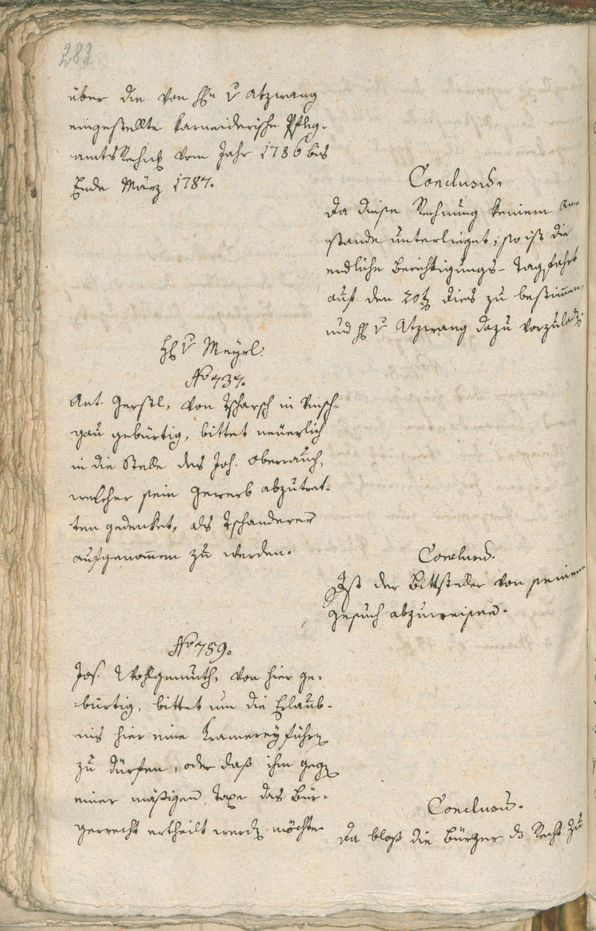 283
über die von Hh v Atzwang
eingestellte Karneiderische Pfleg-
amts Rechng vom Jahr 1786 bis
Ende März 1787.
Conclusum.
Da diese Rechnung keinem An-
stande unterlieget; so ist die
endliche Berichtigungs-Tagfahrt
auf den 20t dies zu bestimmen,
und H v Atzwang dazu vorzuladen.
H v Mayrl.
No 737.
Ant. Gerstl, von Tscharsch in Vinsch-
gau gebürtig, bittet neuerlich
in die Stelle des Joh. Oberrauch,
welcher sein Gewerb abzutret-
ten gedenket, als Tschanderer
aufgenommen zu werden.
Conclusum.
Ist der Bittsteller von seinem
Gesuch abzuweisen.
No 759.
Jos. Wohlgemuth, von hier ge-
bürtig, bittet um die Erlaub-
nis hier eine Kramerey führen
zu dürfen, oder daß ihm gegen
einer mäßigen Taxe das Bür-
gerrecht ertheilt werden möchte.
Conclusum.
Da bloß die Bürger das Recht zu